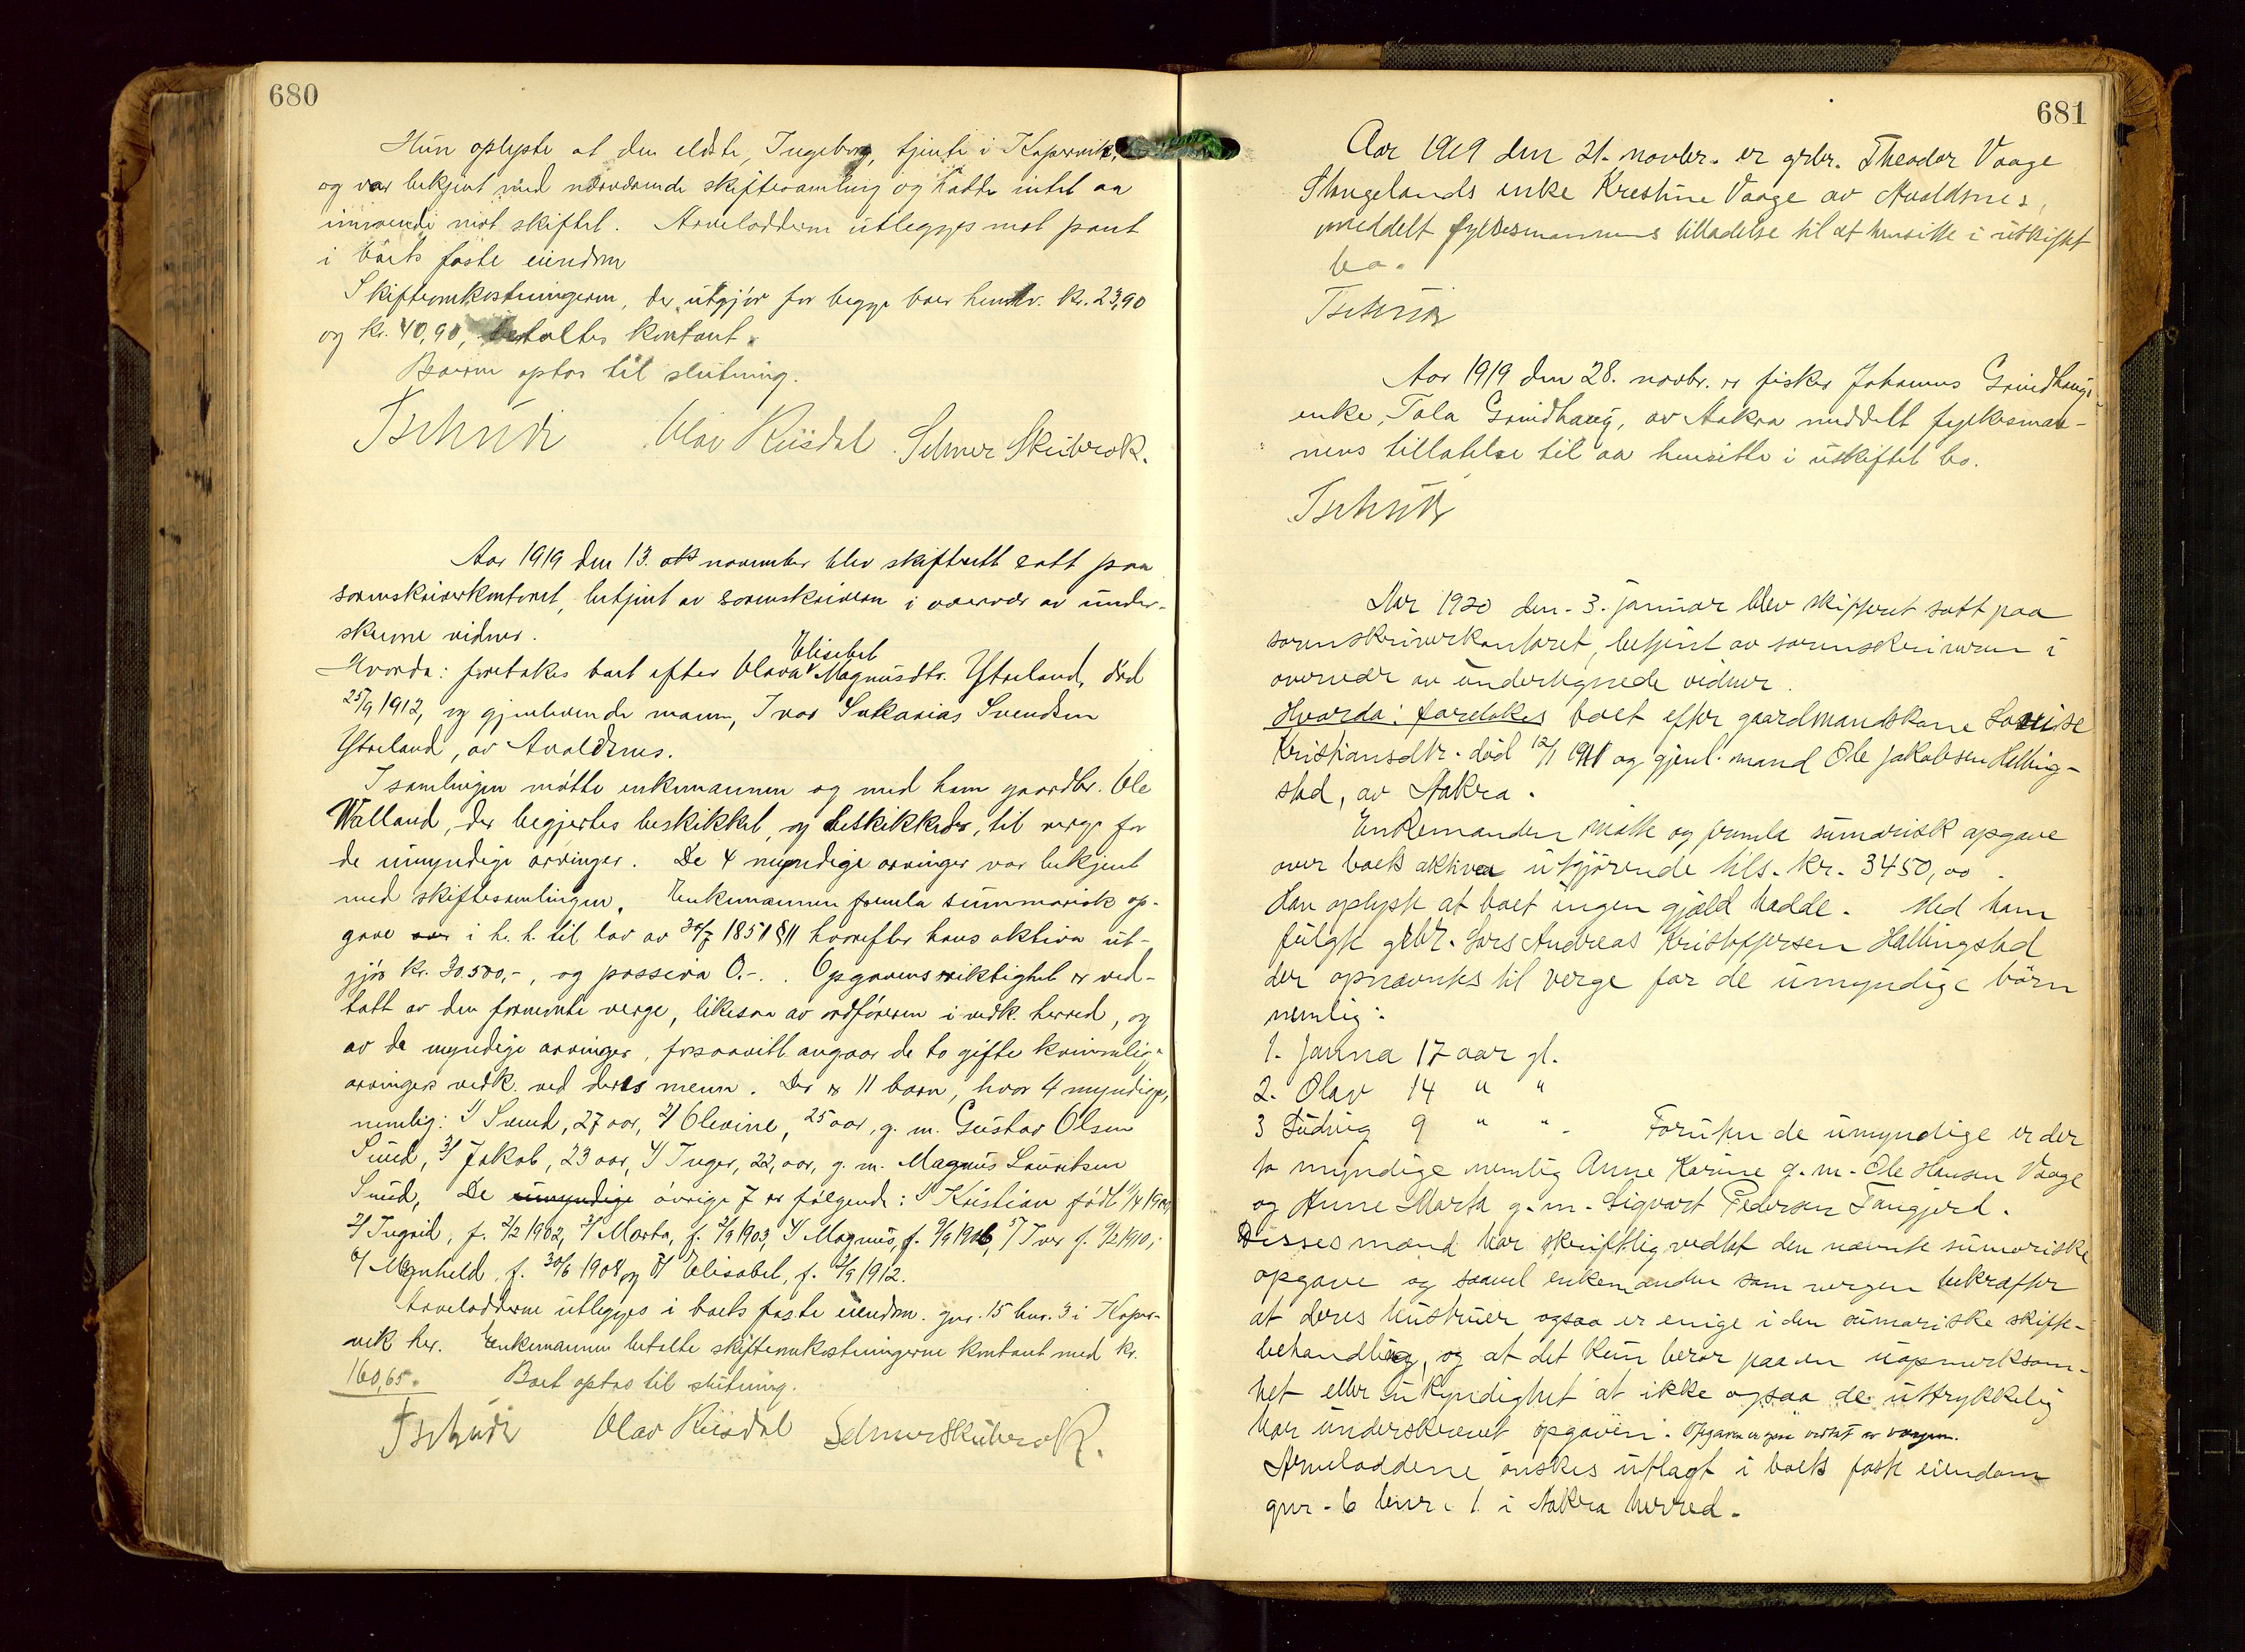 680
Hun oplyste at den eldste, Ingeborg, tjente i Kopervik,
og var bekjent med nærværende skiftesamling og hadde intet aa
innvende mot skiftet. Arvelodderne utlegges mot pant
i boets faste eiendom
Skifteomkostningerne, der utgjør for begge boer henhv. kr. 23,90
og kr. 40,90, betaltes kontant.
Boerne optas til slutning.
Tschudi Olav Riisdal Selmer Skibrok.
Aar 1919 den 13. november blev skifterett satt paa
sorenskriverkontoret, betjent av sorenskriveren i overvær av under-
skrevne vidner.
Elisabet
Hvorda: foretakes boet efter Olava Magnusdtr. Ytreland, død
25/9 1912, og gjenlevende mann, Ivar Sakarias Svendsen
Ytreland, av Avaldsnes.
I samlingen møtte enkemannen og med ham gaardbr. Ole
Walland, der begjertes beskikket, og beskikkedes, til verge for
de umyndige arvinger. De 4 myndige arvinger var bekjent
med skiftesamlingen. Enkemannen fremla summarisk op-
gave over i h. h. til lov av 30/7 1851 § 11 hvorefter hans aktiva ut-
gjør kr. 30.500,-, og passiva 0.-. Opgavens riktighet er ved-
tatt av den fornevnte verge, likesaa av ordføreren i vedk. herred, og
av de myndige arvinger, forsaavitt angaar de to gifte kvinnelige
arvingers vedk. ved deres menn. Der er 11 barn, hvor 4 myndige,
nemlig: 1/ Svend, 27 aar, 2/ Olevine, 25 aar, g. m. Gustav Olsen
Sund, 3/ Jakob, 23 aar, 4/ Inger, 22, aar, g. m. Magnus Lauritsen
Sund, De umyndige øvrige 7 er følgende: 1/ Kristian født 1/4 1900,
2/ Ingrid, f. 2/2 1902, 3/ Marta, f. 2/9 1903, 4/ Magnus, f. 9/9 1906, 5/ Iver f. 9/2 1910,
6/ Magnhild, f. 30/6 1908 og 7/ Elisabet, f. 2/9 1912.
Arvelodderne utlegges i boets faste eiendom. gnr. 15 bnr. 3 i Koper-
vik her. Enkemannen betalte skifteomkostningerne kontant med kr.
160,65. Boet optas til slutning.
Tschudi Olav Riisdal Selmer Skibrok.
681
Aar 1919 den 21. novbr. er grbr. Theodor Vaage
Stangelands enke Krestine Vaage av Avaldsnes,
meddelt fylkesmannens tilladelse til at hensitte i uskiftet
bo.
Tschudi
Aar 1919 den 28. novbr. er fisker Johannes Grindhaugs
enke, Tala Grindhaug, av Aakra meddelt fylkesman-
nens tillatelse til aa hensitte i uskiftet bo.
Tschudi
Aar 1920 den. 3. januar blev skifteret satt paa
sorenskriverkontoret, betjent av sorenskriveren i
overvær av undertegnede vidner.
Hvorda: foretokes boet efter gaardmandskone Lovise
Kristiansdtr. død 12/1 1911 og gjenl. mand Ole Jakobsen Helling-
stad, av Aakra.
Enkemanden møtte og fremla sumarisk opgave
over boets aktiva utgjørende tils. kr. 3450,00.
Han oplyste at boet ingen gjæld hadde. Med ham
fulgte grbr. Lars Andreas Kristoffersen Hallingstad
der opnævntes til verge for de umyndige børn
nemlig:
1. Janna 17 aar gl.
2. Olav 14 " "
3 Ludvig 9 " ". Foruten de umyndige er der
to myndige nemlig Anne Karine g. m. Ole Hansen Vaage
og Anne Marta g. m. Sigvart Pedersen Tangjerd.
Disses mænd har skriftlig vedtat den nævnte sumariske
opgave og saavel enkemanden som vergen bekræfter
at deres hustruer ogsaa er enige i den sumariske skifte-
behandling, og at det kun beror paa en uopmerksom-
het eller ukyndighet at ikke ogsaa de uttrykkelig
har underskrevet opgaven. Opgaven er også vedtat av vergen.
Arveloddene ønskes utlagt i boets faste eiendom
gnr. 6 bnr. 1. i Aakra herred.